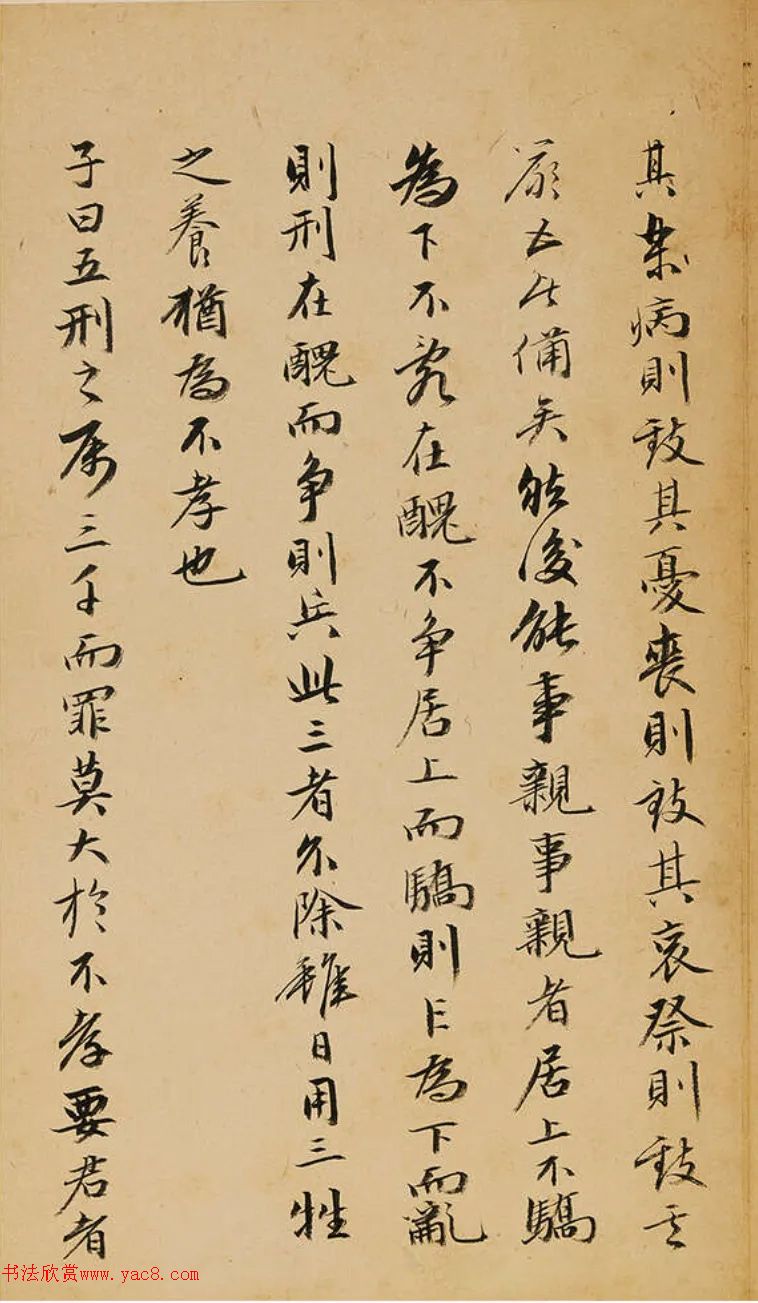 其樂病則致其憂喪則致其哀祭則致其
嚴五者備矣然後能事親事親者居上不驕
為下不亂在醜不争居上而驕則亡為下而亂
則刑在醜而争則兵此三者不除雖日用三牲
之養猶為不孝也
子曰五刑之属三千而罪莫大於不孝要君者
书法欣赏www.yac8.com